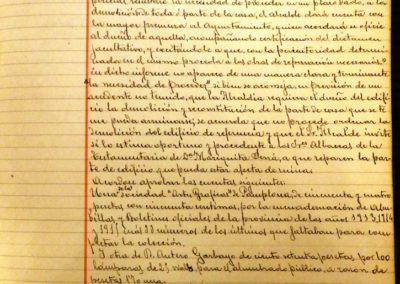 pericial resultare la necesidad de proceder en un plazo dado, a la
demolición de toda o parte de la casa, el Alcalde dará cuenta con
la mayor premura al Ayuntamiento, quien acordará u oficiar
al dueño de aquella, acompañando certificación del dictamen
facultativo, y excitándole a que, con la perentoriedad determi-
nada en el mismo proceda a las obras de reparación necesarias.
en dicho informe no aparece de una manera clara y terminante
la necesidad de proceder si bien se aconseja, en previsión de un
accidente no lejano, que la Alcaldía requiera al dueño del edifi-
cio la demolición y reconstitución de la parte de casa que se te-
me pueda arruinarse; se acuerda que no procede ordenar la
demolición del edificio de referencia y que el Sr. Alcalde invite
si lo estima oportuno y procedente a los Sres Albaceas de la
testamentaría de Dª Mariquita a que reparen la par-
te de edificio que pueda estar afecta de ruina.
Acordose aprobar las cuentas siguientes:
Una sociedad "Artes Gráficas" de Pamplona, de cincuenta y cuatro
pesetas con cincuenta céntimos, por la encuadernación de Abu-
y Boletines oficiales de la provincia de los años 1913, 1914
y 1915, más 33 números de los últimos que faltaban para com-
pletar la colección.
Y otra de D. Antero Garbayo de ciento setenta pesetas, por 100
lámparas de 25 watts, para el alumbrado público, a razón de
pesetas 1'70 una.